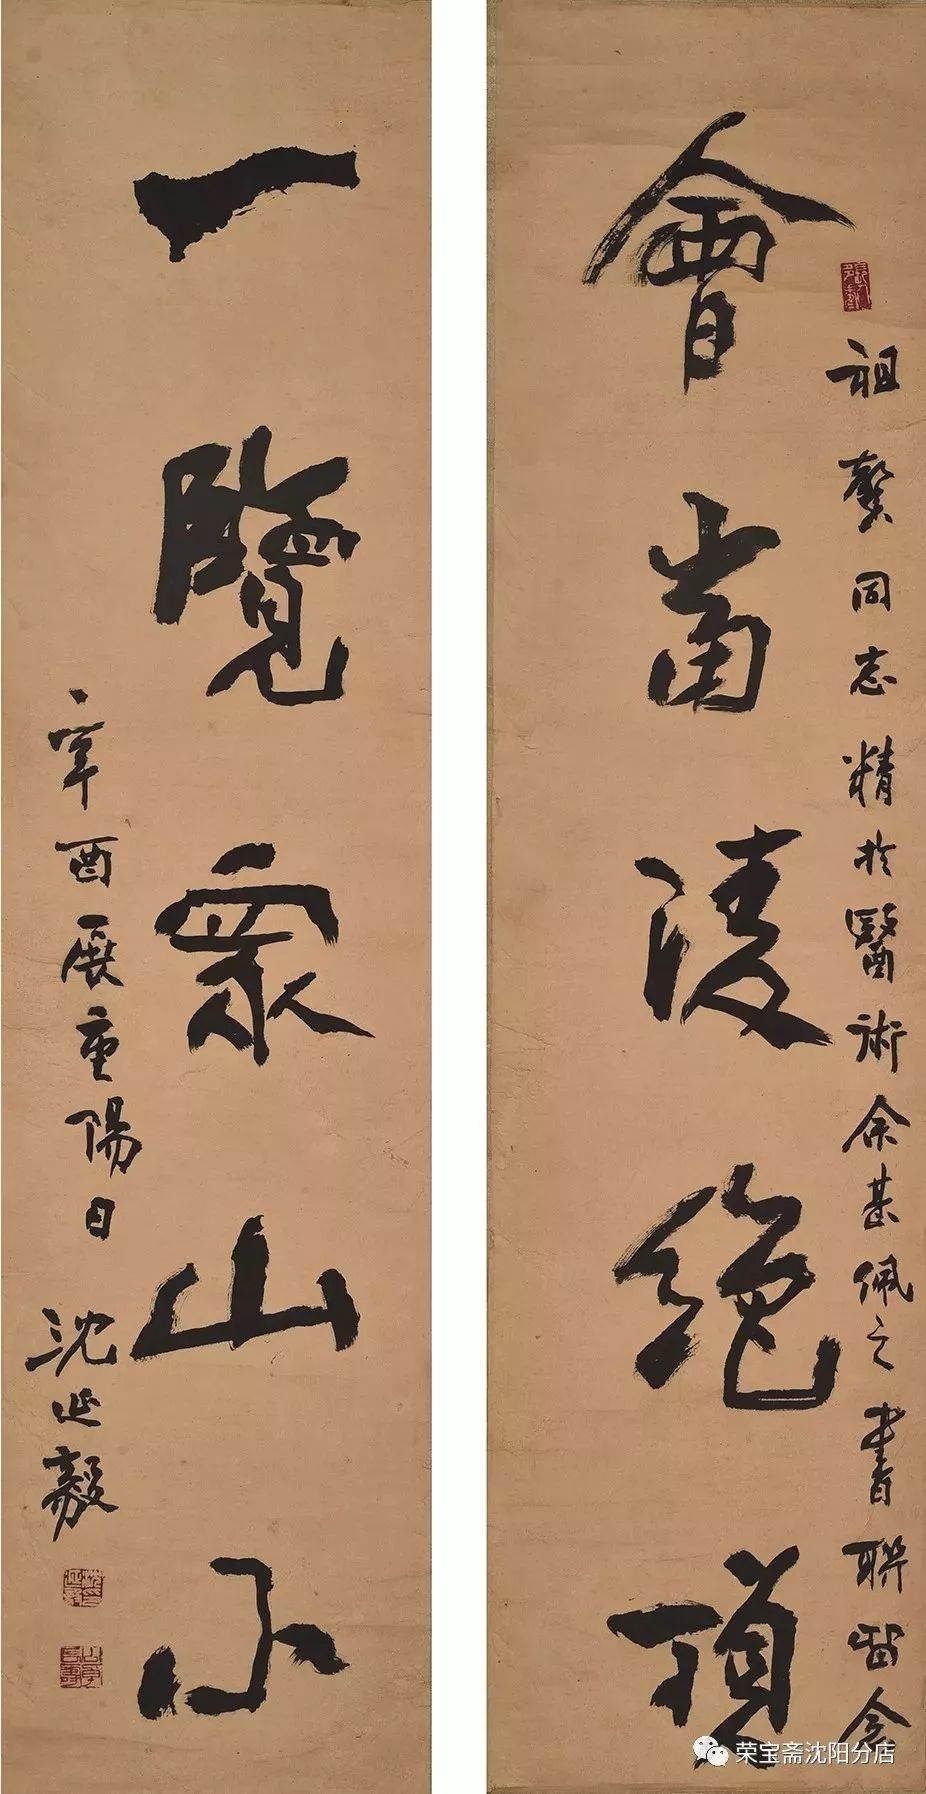 會當淩絕頂
祖馨同志精於醫術余甚佩之書聯留念
一覽眾山小
辛酉展重陽日沈延毅
荣宝斋沈阳分店